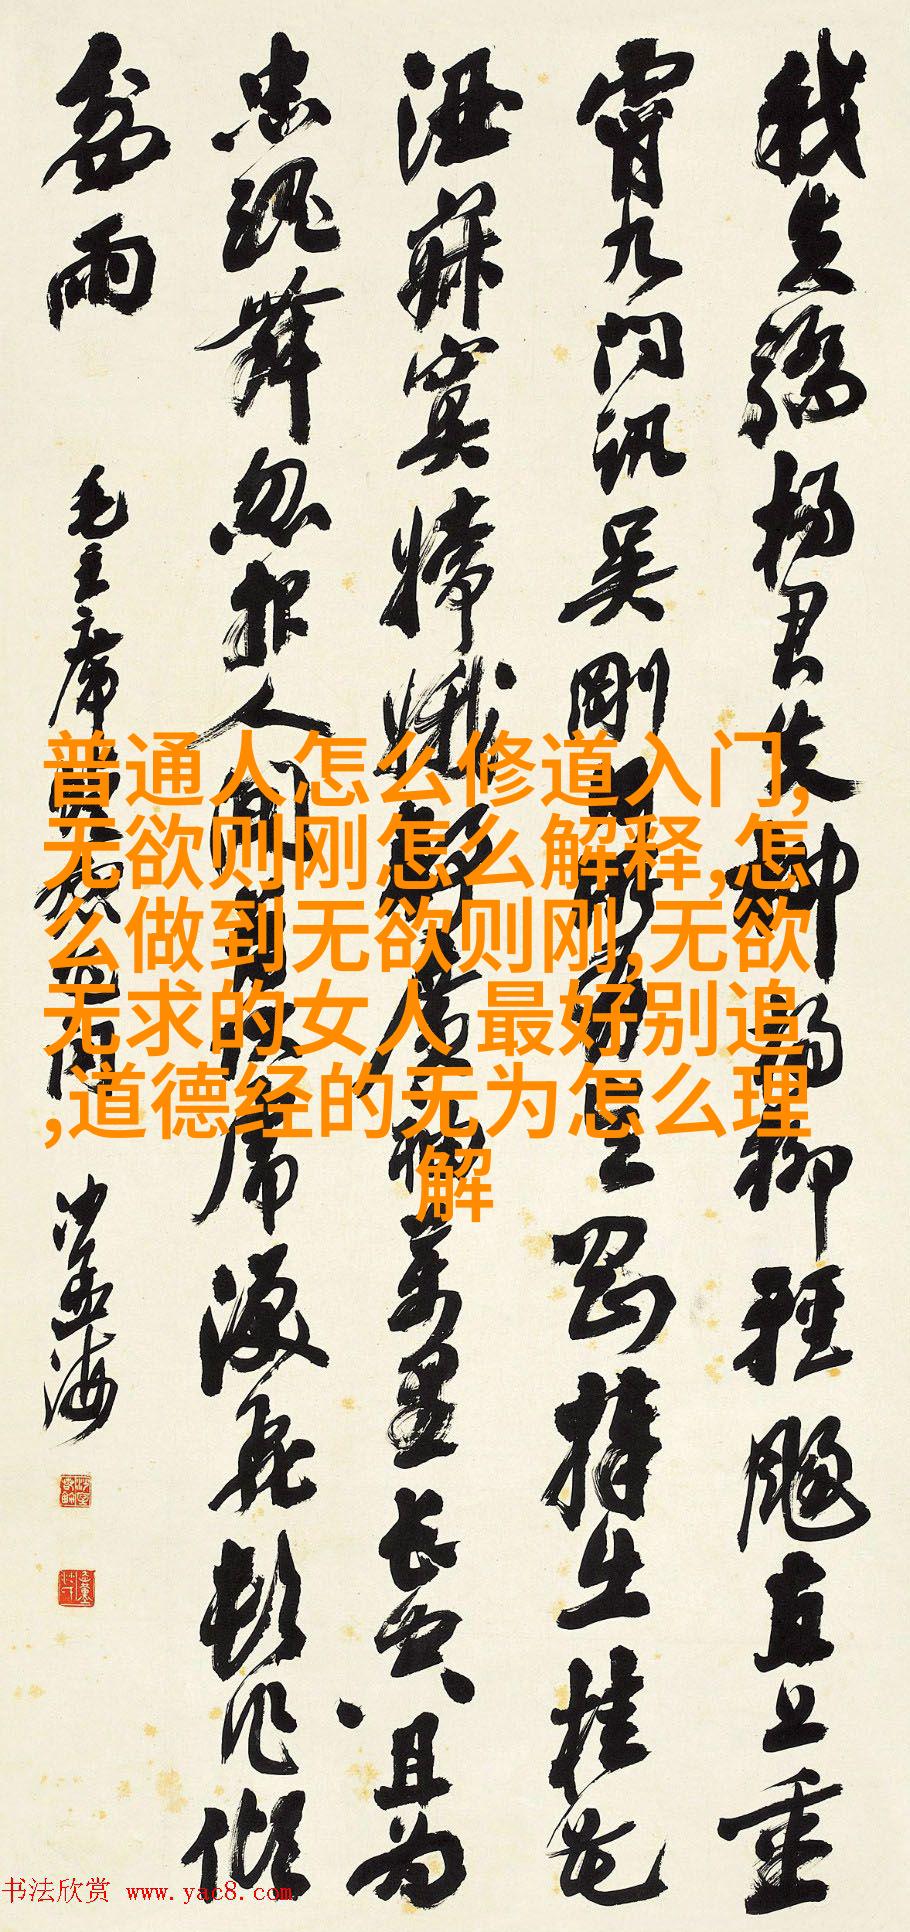 我失驕楊君失柳楊柳輕颺直上重
霄九問訊吳剛所有吳剛捧出桂花
酒寂寞嫦娥舒廣袖萬里長空且為
忠魂舞忽报人间伏虎淚飛頓作傾
盆雨
毛主席蝶恋花词 沙孟海
普通人怎么修道入门,
无欲则刚怎么解释,怎
么做到无欲则刚,无欲
无求的女人 最好别追
,道德经的无为怎么理
解
书法欣赏 www.yac8.com